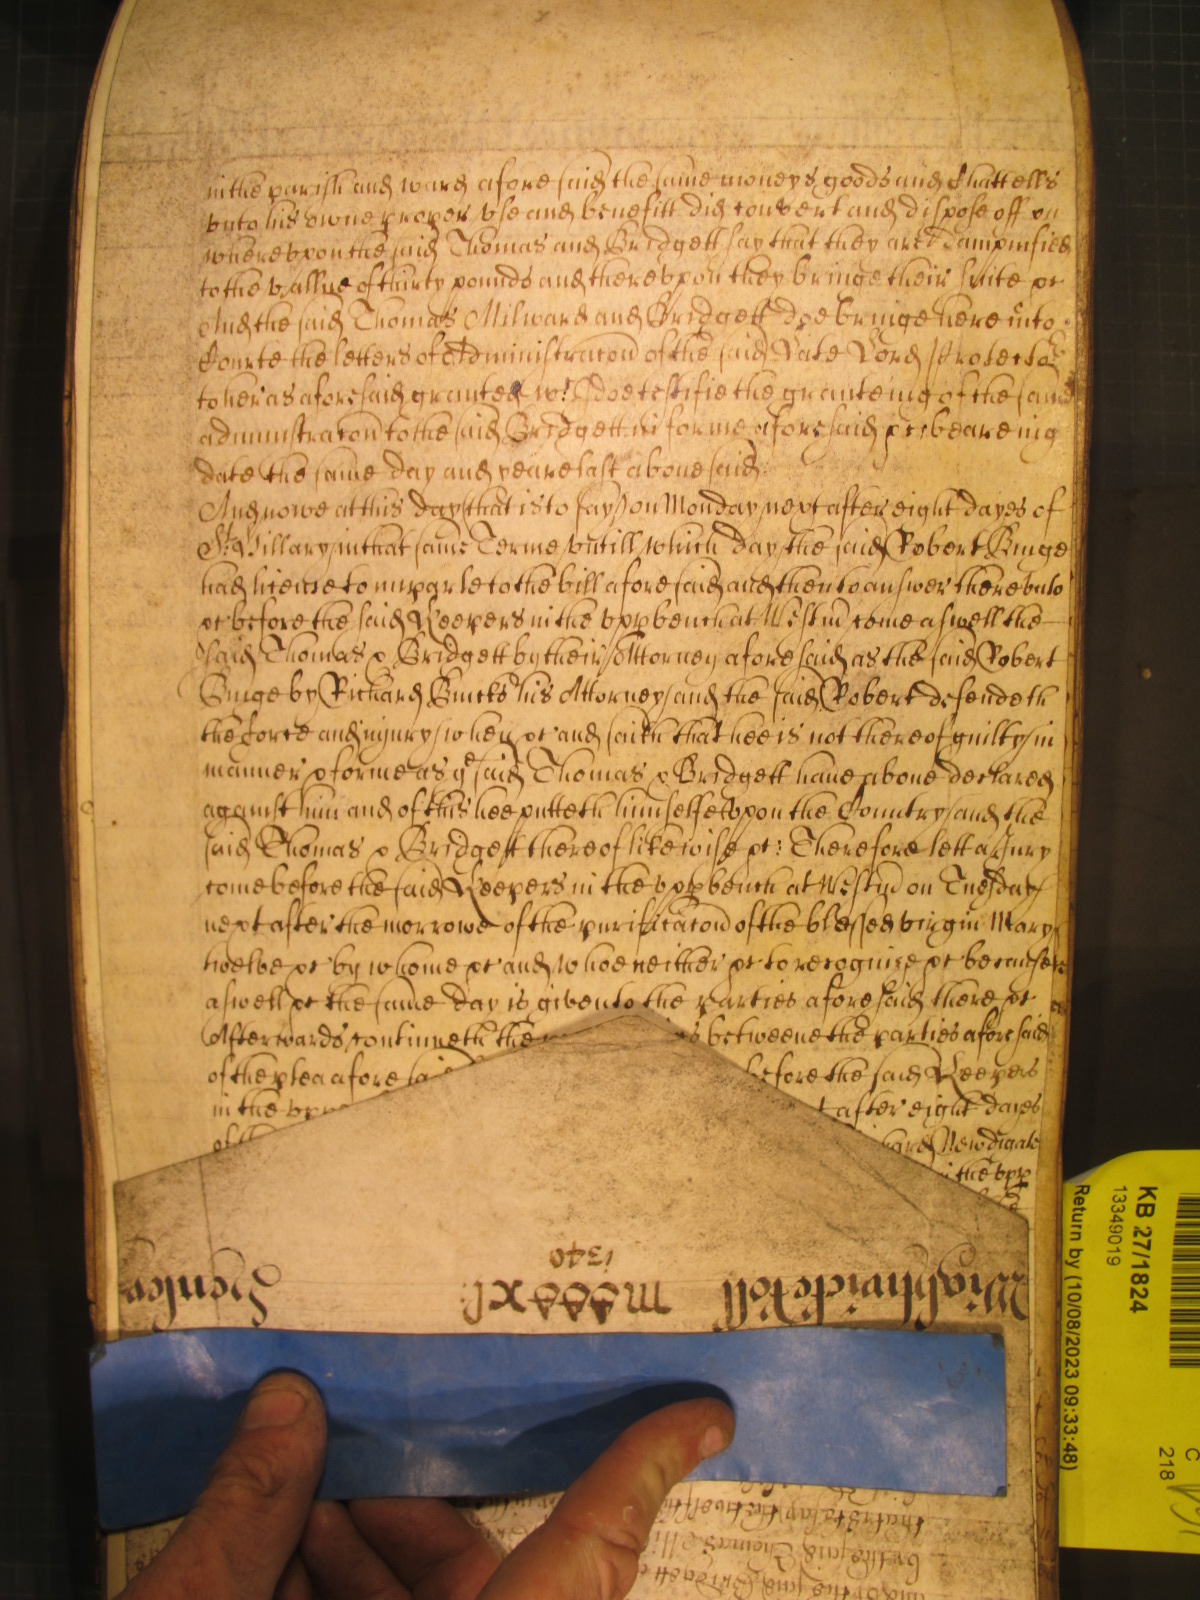 in the parish and ward aforesaid the same moneys goods and Chattells
vnto his owne proper vse and benefitt did convert and dispose off
wherevpon the said Thomas and Bridgett say that they are dampnified
to the vallue of thirty pounds and therevpon they bringe their suite &c
And the said Thomas Milward and Bridgett doe bringe here into
Courte the letters of Administracon of the said Late Lord Protector
to her as aforesaid granted wch doe testifie the granteing of the same
administracon to the said Bridgett in forme aforesaid beareing
date the same day and yeare last aboue said
And nowe at this day that is to say on Monday next after eight dayes of
St Hillary in that same Terme vntill which day the said Robert Binge
had licence to imparle to the bill aforesaid and then to answer therevnto
&c before the said Keepers in the vpp bench at Westm come aswell the
said Thomas & Bridgett by their Attorney aforesaid as the said Robert
Binge by Richard his Attorney and the said Robert defendeth
the force and injury when &c and saith that hee is not thereof guilty in
manner & forme as ye said Thomas & Bridgett haue aboue declared
against him and of this hee putteth himselfe vpon the Country and the
said Thomas & Bridgett thereof likewise &c: Therefore lett a Jury
come before the said Keepers in the vpp bench at Westm on Tuesday
next after the morrowe of the purificacon of the blessed virgin Mary
twelve &c by whome &c and whoe neither &c to recognise &c because
aswell &c the same day is given to the parties aforesaid there &c
Afterwards continueth the betweene the parties aforesaid
of the plea aforesaid before the said Keepers
in the after eight dayes
of the Newdigate
in the vpp
Wightwick Roll
1340
KB 27/1824
13349019
Return by (10/08/2023 09:33:48)
C
218
that is to say
by the said Thomas
and Bridgett